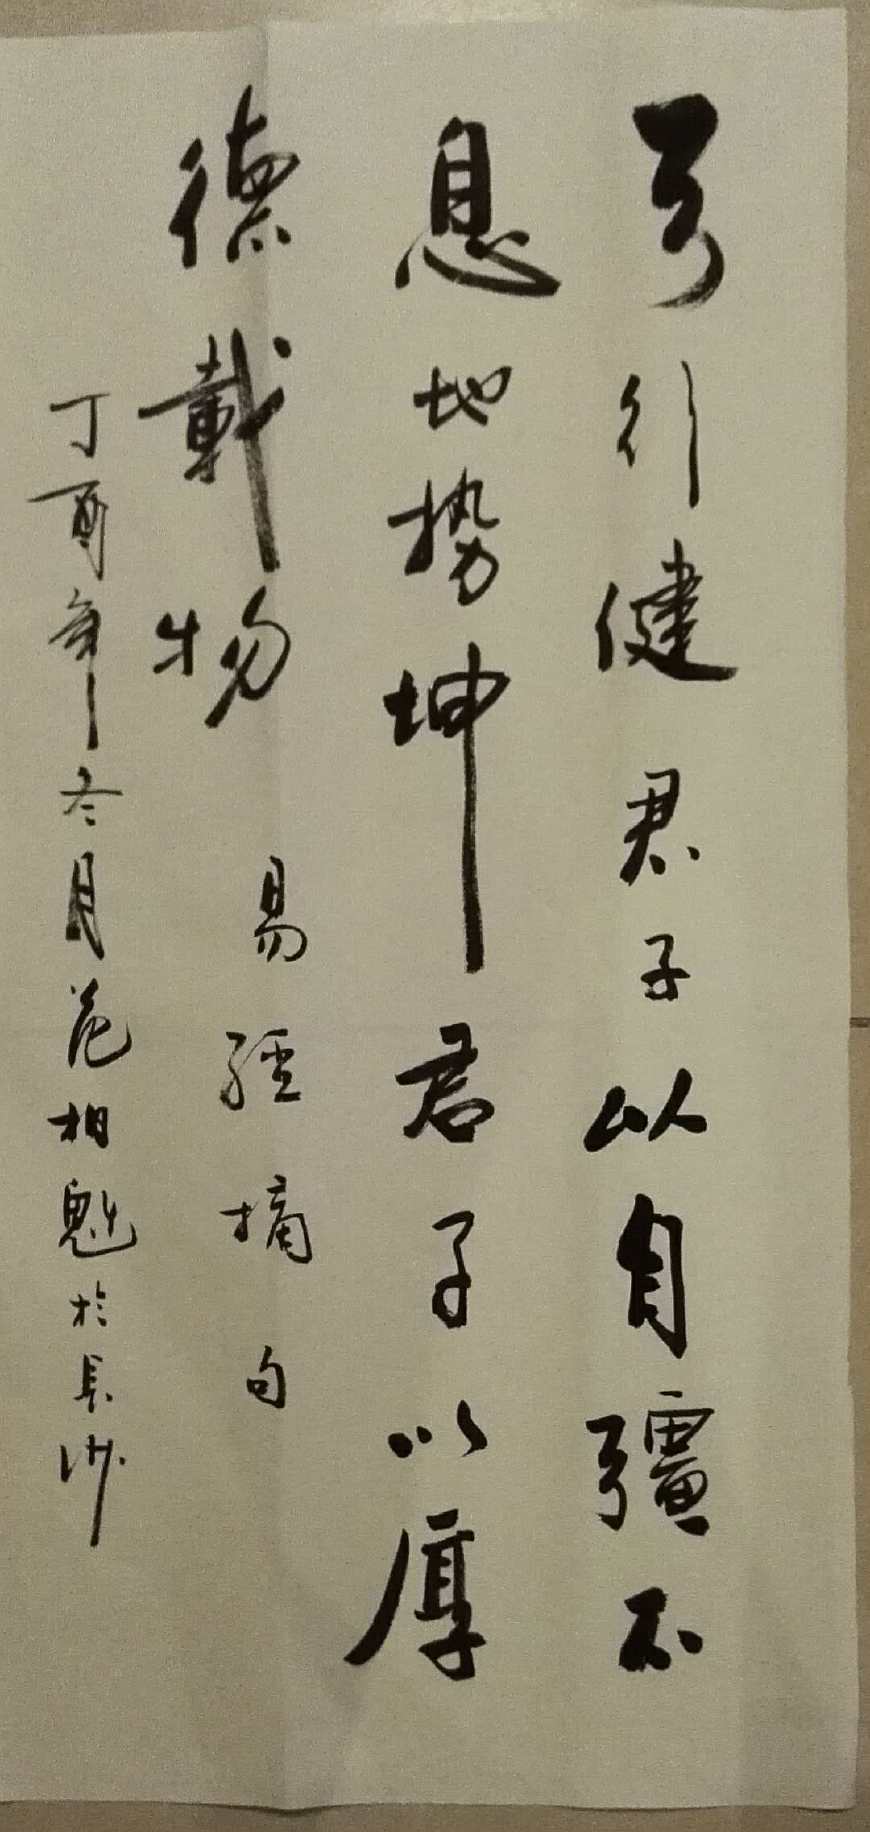 天行健君子以自彊不
息地势坤君子以厚
德載物
易經摘句
丁酉年冬月范相魁於長沙